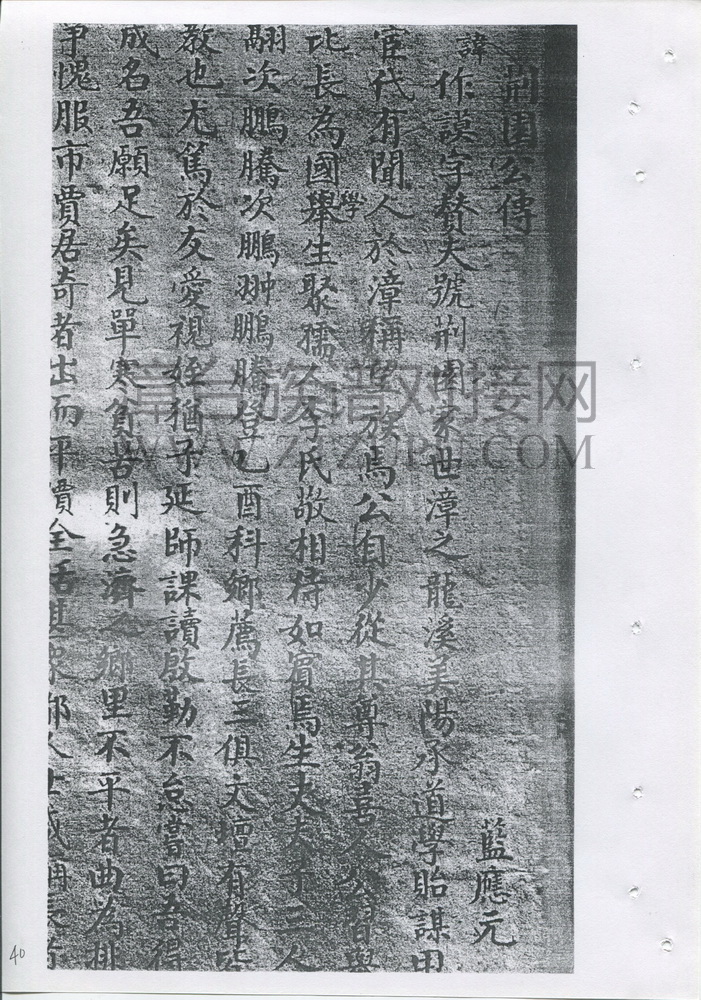 荆園公傳
藍應元
諱作謨字贊夫號荆園家世漳之龍溪美陽承道學貽謀
宦代有聞人於漳稱望族焉公自少從其尊翁喜人公習舉
比長為國學舉生聚孺人李氏敬相待如賓焉生丈夫子三人
翮次鵬騰次鵬翀鵬騰登乙酉科鄉薦長三俱文壇有聲
教也尤篤於友愛視姪猶子延師課讀啟勤不怠嘗曰吾得
成名吾願足矣見單寒貧苦則急濟之鄉里不平者曲為排
爭愧服市賈居奇者出而平價全活
章台族谱对接网
WWW.ZTZUPU.COM
40